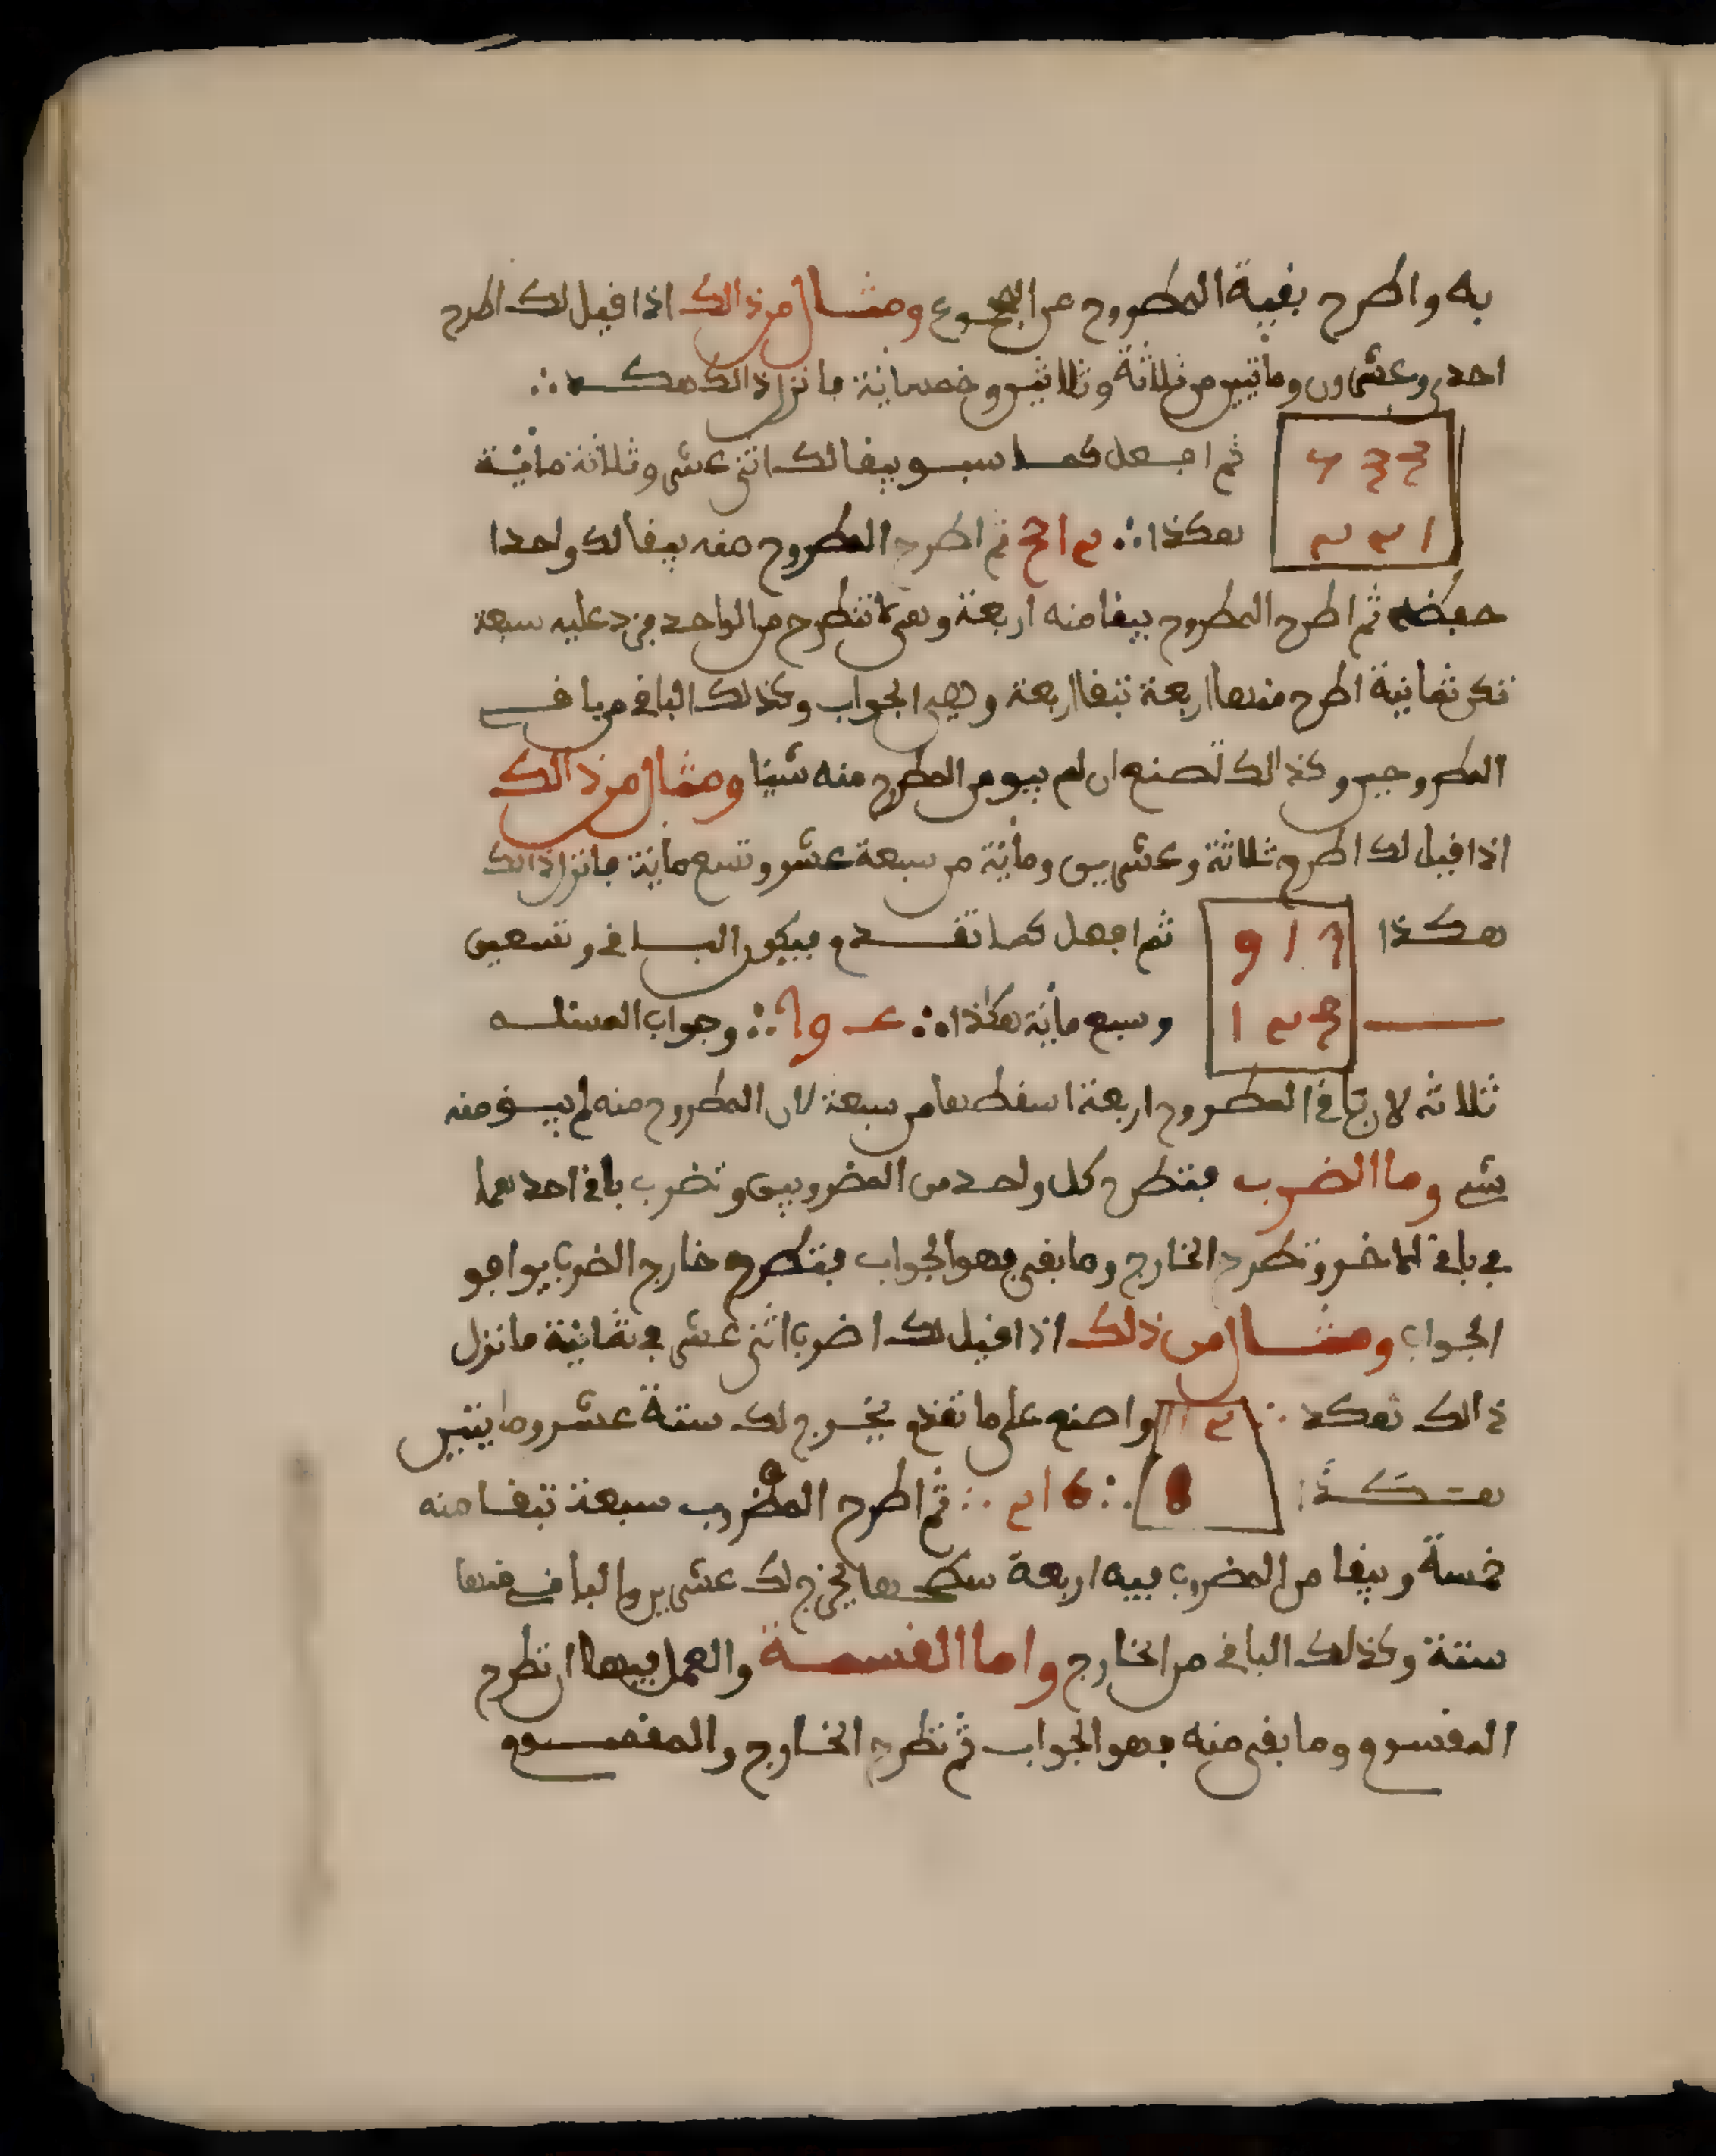 به واطرح بقية المطروح من المجموع ومثال من ذالك اذا قيل لك اطرح
احدى وعشرون وماتيين من ثلاثة وثلاثين وخمسماية فانزل ذالك هكذ
ثم اجعل كما سبق يبقا لك اثنى عشر وثلاثة ماية
هكذا ثم اطرح المطروح منه يبقا لك واحدا
حفظه ثم اطرح المطروح يبقا منه اربعة وهى لا تنطرح من الواحد فزد عليه سبعة
تكن ثمانية اطرح منها اربعة تبقا اربعة وهى الجواب وكذلك الباقى من باقى
المطروحين وكذالك تصنع ان لم يبق من المطرح منه شيئا ومثال من ذالك
اذا قيل لك اطرح ثلاثة وعشرين وماية من سبعة عشر وتسع ماية فانزل ذالك
هكذا 9 1 7 ثم اجعل كما تقدم فيكون الباقى وتسعين
وسبع ماية هكذا وجواب المسئلة
ثلاثه لان باقى المطروح اربعة اسقطها من سبعة لان المطروح منه لم يبق منه
شى وما الضرب فتطرح كل واحد من المضروبين وتضرب باقى احدهما
فى باقى الاخر وتطرح الخارج وما بقى فهو الجواب فتطرح خارج الضرب يوافق
الجواب ومثال من ذلك اذا قيل لك اضرب اثنى عشر فى ثمانية فانزل
ذالك هكذ واصنع على ما تقدم يخرج لك ستة عشر ومايتين
هكذا 8 ثم اطرح المضروب سبعة تبقا منه
خمسة ويبقا من المضروب فيه اربعة سطحها يخرج لك عشرين والباقى منها
ستة وكذلك الباقى من الخارج واما القسمة والعمل فيها ان تطرح
المقسوم وما بقى منه فهو الجواب ثم تطرح الخارج والمقسوم